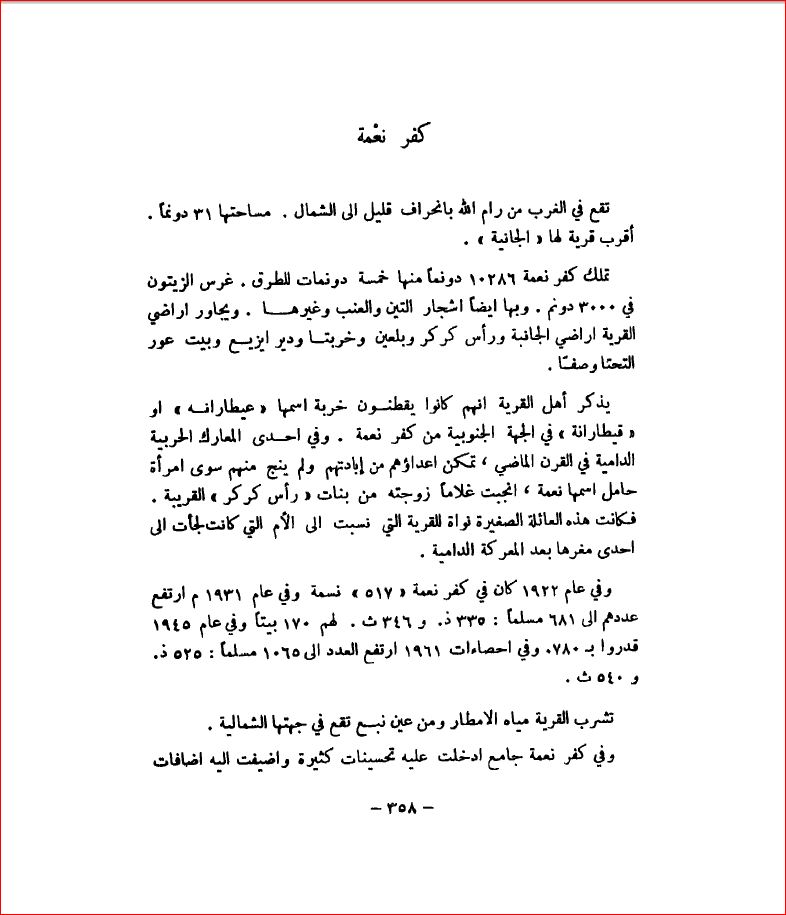 كفر نعْمة
تقع في الغرب من رام الله بانحراف قليل الى الشمال . مساحتها ٣١ دونماً .
أقرب قرية لها « الجانية » .
تملك كفر نعمة ١٠٢٨٦ دونماً منها خمسة دونمات للطرق . غرس الزيتون
في ٣٠٠٠ دونم . وبها ايضاً اشجار التين والعنب وغيرهـــا . ويجاور اراضي
القرية اراضي الجانية ورأس كركر وبلعين وخربتـا ودير ابزيـع وبيت عور
التحتا وصفّا .
يذكر أهل القرية انهم كانوا يقطنـون خربة اسمها «عيطارانـه» او
« قيطارانة » في الجهة الجنوبية من كفر نعمة . وفي احـدى المعارك الحربية
الدامية في القرن الماضي ، تمكن اعداؤهم من إبادتهم ولم ينج منهم سوى امرأة
حامل اسمها نعمة ، انجبت غلاماً زوجته من بنات « رأس كركر » القريبة .
فكانت هذه العائلة الصغيرة نواة للقرية التي نسبت الى الأم التي كانت لجأت الى
احدى مغرها بعد المعركة الدامية .
وفي عام ١٩٢٢ كان في كفر نعمة « ٥١٧ » نسمة وفي عام ١٩٣١ م ارتفع
عددهم الى ٦٨١ مسلماً : ٣٣٥ ذ. و ٣٤٦ ث . لهم ١٧٠ بيتاً وفي عام ١٩٤٥
قدروا بـ ٧٨٠. وفي احصاءات ١٩٦١ ارتفع العدد الى ١٠٦٥ مسلماً : ٥٢٥ ذ.
و ٥٤٠ ث .
تشرب القرية مياه الامطار ومن عين نبـع تقع في جهتها الشمالية .
وفي كفر نعمة جامع ادخلت عليه تحسينات كثيرة واضيفت اليه اضافات
– ٣٥٨ –